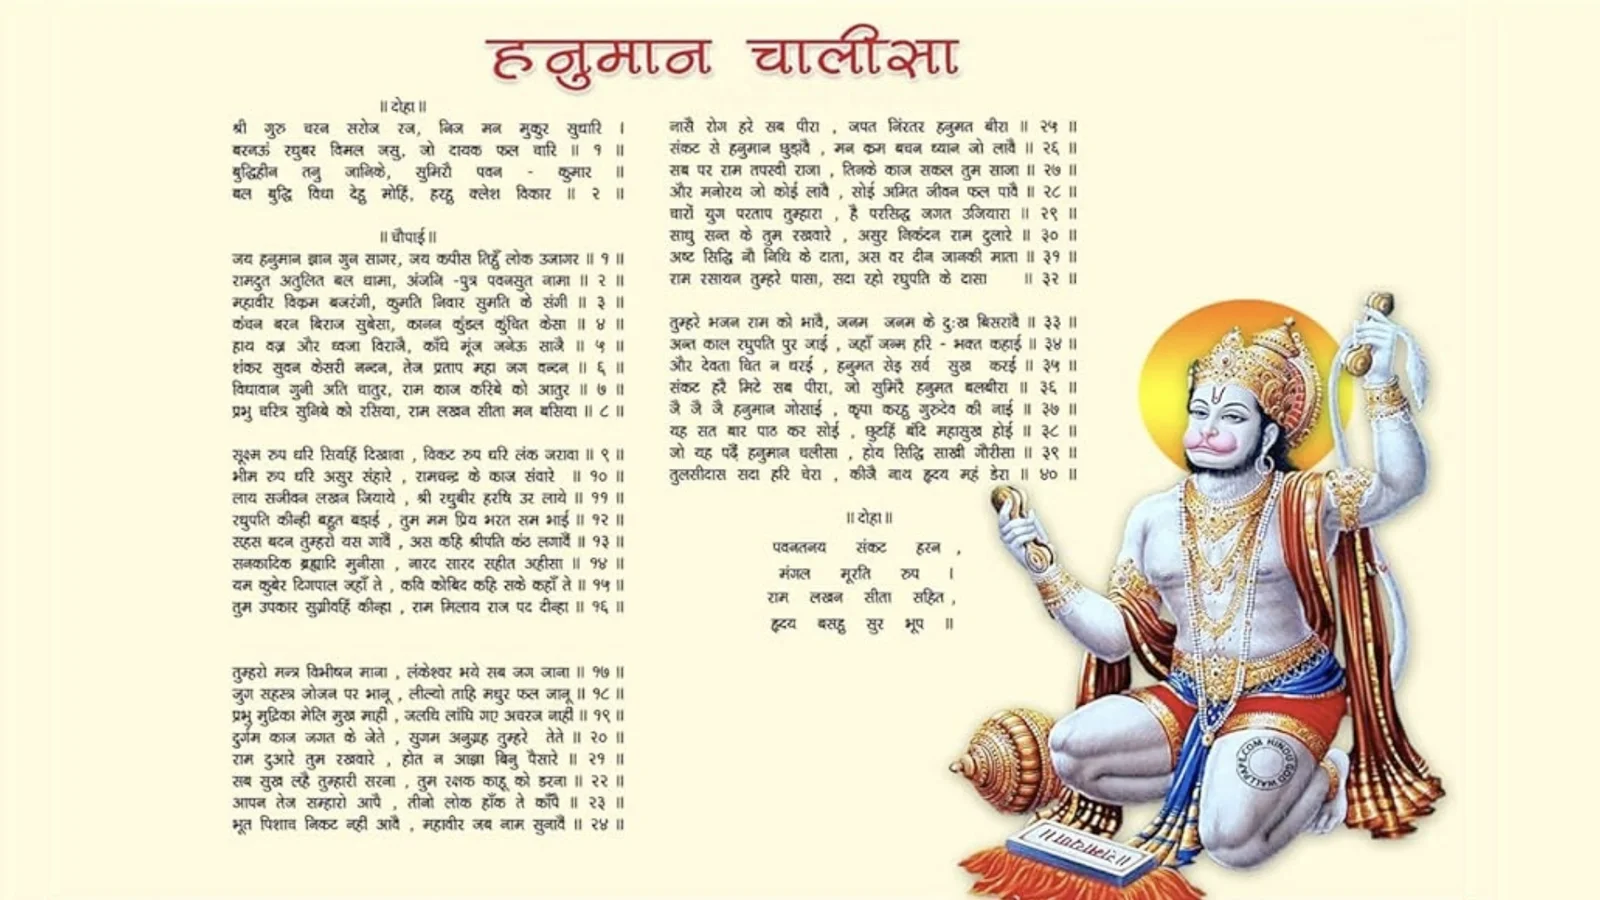 हनुमान चालीसा
॥ दोहा ॥
श्री गुरु चरन सरोज रज, निज मन मुकुर सुधारि ।
बरनऊं रघुबर विमल जसु, जो दायक फल चारि ॥ १ ॥
बुद्धिहीन तनु जानिके, सुमिरौ पवन - कुमार ॥
बल बुद्धि विधा देहु मोहिं, हरहु क्लेश विकार ॥ २ ॥
॥ चौपाई ॥
जय हनुमान ज्ञान गुन सागर, जय कपीस तिहुँ लोक उजागर ॥ १ ॥
रामदुत अतुलित बल धामा, अंजनि -पुत्र पवनसुत नामा ॥ २ ॥
महावीर विक्रम बजरंगी, कुमति निवार सुमति के संगी ॥ ३ ॥
कंचन बरन बिराज सुबेसा, कानन कुंडल कुंचित केसा ॥ ४ ॥
हाथ वज्र और ध्वजा विराजै, काँधे मूंज जनेऊ साजै ॥ ५ ॥
शंकर सुवन केसरी नन्दन, तेज प्रताप महा जग वन्दन ॥ ६ ॥
विधावान गुनी अति चातुर, राम काज करिबे को आतुर ॥ ७ ॥
प्रभु चरित्र सुनिबे को रसिया, राम लखन सीता मन बसिया ॥ ८ ॥
सूक्ष्म रुप धरि सियहिं दिखावा , विकट रुप धरि लंक जरावा ॥ ९ ॥
भीम रुप धरि असुर संहारे , रामचन्द्र के काज संवारे ॥ १० ॥
लाय सजीवन लखन जियाये , श्री रघुबीर हरषि उर लाये ॥ ११ ॥
रघुपति कीन्ही बहुत बड़ाई , तुम मम प्रिय भरत सम भाई ॥ १२ ॥
सहस बदन तुम्हरो यस गावैं , अस कहि श्रीपति कंठ लगावैं ॥ १३ ॥
सनकादिक ब्रह्मादि मुनीसा , नारद सारद सहीत अहीसा ॥ १४ ॥
यम कुबेर दिगपाल जहाँ ते , कवि कोबिद कहि सके कहाँ ते ॥ १५ ॥
तुम उपकार सुग्रीवहिं कीन्हा , राम मिलाय राज पद दीन्हा ॥ १६ ॥
तुम्हरो मन्त्र विभीषन माना , लंकेश्वर भये सब जग जाना ॥ १७ ॥
जुग सहस्त्र जोजन पर भानू , लील्यो ताहि मधुर फल जानू ॥ १८ ॥
प्रभु मुद्रिका मेलि मुख माहीं , जलधि लांघि गए अचरज नाहीं ॥ १९ ॥
दुर्गम काज जगत के जेते , सुगम अनुग्रह तुम्हरे तेते ॥ २० ॥
राम दुआरे तुम रखवारे , होत न आज्ञा बिनु पैसारे ॥ २१ ॥
सब सुख लहै तुम्हारी सरना , तुम रक्षक काहू को डरना ॥ २२ ॥
आपन तेज सम्हारो आपै , तीनो लोक हाँक ते काँपै ॥ २३ ॥
भूत पिशाच निकट नहीं आवै , महावीर जब नाम सुनावै ॥ २४ ॥
नासै रोग हरे सब पीरा , जपत निंरतर हनुमत बीरा ॥ २५ ॥
संकट से हनुमान छुड़ावै , मन क्रम बचन ध्यान जो लावै ॥ २६ ॥
सब पर राम तपस्वी राजा , तिनके काज सकल तुम साजा ॥ २७ ॥
और मनोरथ जो कोई लावै , सोई अमित जीवन फल पावै ॥ २८ ॥
चारों युग परताप तुम्हारा , है परसिद्ध जगत उजियारा ॥ २९ ॥
साधु सन्त के तुम रखवारे , असुर निकंदन राम दुलारे ॥ ३० ॥
अष्ट सिद्धि नौ निधि के दाता, अस वर दीन जानकी माता ॥ ३१ ॥
राम रसायन तुम्हरे पासा, सदा रहो रघुपति के दासा ॥ ३२ ॥
तुम्हरे भजन राम को भावै, जनम जनम के दुःख बिसरावै ॥ ३३ ॥
अन्त काल रघुपति पुर जाई , जहाँ जन्म हरि - भक्त कहाई ॥ ३४ ॥
और देवता चित न धरई , हनुमत सेइ सर्व सुख करई ॥ ३५ ॥
संकट हरै मिटे सब पीरा, जो सुमिरै हनुमत बलबीरा ॥ ३६ ॥
जै जै जै हनुमान गोसाई , कृपा करहु गुरुदेव की नाई ॥ ३७ ॥
यह सत बार पाठ कर सोई , छुटहिं बँदि महासुख होई ॥ ३८ ॥
जो यह पढ़ैं हनुमान चलीसा , होय सिद्धि साखी गौरीसा ॥ ३९ ॥
तुलसीदास सदा हरि चेरा , कीजै नाथ हृदय महं डेरा ॥ ४० ॥
॥ दोहा ॥
पवनतनय संकट हरन ,
मंगल मूरति रुप ।
राम लखन सीता सहित ,
हृदय बसहु सुर भूप ॥
HINDU GOD WALLPAPER.COM